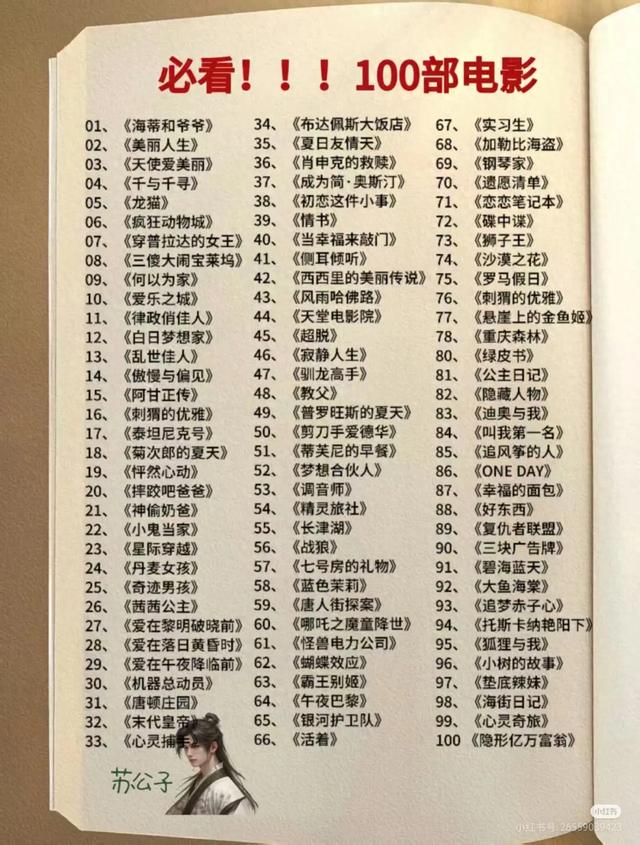 必看！！！100部电影
01、《海蒂和爷爷》
02、《美丽人生》
03、《天使爱美丽》
04、《千与千寻》
05、《龙猫》
06、《疯狂动物城》
07、《穿普拉达的女王》
08、《三傻大闹宝莱坞》
09、《何以为家》
10、《爱乐之城》
11、《律政俏佳人》
12、《白日梦想家》
13、《乱世佳人》
14、《傲慢与偏见》
15、《阿甘正传》
16、《刺猬的优雅》
17、《泰坦尼克号》
18、《菊次郎的夏天》
19、《怦然心动》
20、《摔跤吧爸爸》
21、《神偷奶爸》
22、《小鬼当家》
23、《星际穿越》
24、《丹麦女孩》
25、《奇迹男孩》
26、《茜茜公主》
27、《爱在黎明破晓前》
28、《爱在落日黄昏时》
29、《爱在午夜降临前》
30、《机器总动员》
31、《唐顿庄园》
32、《末代皇帝》
33、《心灵捕手》
34、《布达佩斯大饭店》
35、《夏日友情天》
36、《肖申克的救赎》
37、《成为简·奥斯汀》
38、《初恋这件小事》
39、《情书》
40、《当幸福来敲门》
41、《侧耳倾听》
42、《西西里的美丽传说》
43、《风雨哈佛路》
44、《天堂电影院》
45、《超脱》
46、《寂静人生》
47、《驯龙高手》
48、《教父》
49、《普罗旺斯的夏天》
50、《剪刀手爱德华》
51、《蒂芙尼的早餐》
52、《梦想合伙人》
53、《调音师》
54、《精灵旅社》
55、《长津湖》
56、《战狼》
57、《七号房的礼物》
58、《蓝色茉莉》
59、《唐人街探案》
60、《哪吒之魔童降世》
61、《怪兽电力公司》
62、《蝴蝶效应》
63、《霸王别姬》
64、《午夜巴黎》
65、《银河护卫队》
66、《活着》
67、《实习生》
68、《加勒比海盗》
69、《钢琴家》
70、《遗愿清单》
71、《恋恋笔记本》
72、《碟中谍》
73、《狮子王》
74、《沙漠之花》
75、《罗马假日》
76、《刺猬的优雅》
77、《悬崖上的金鱼姬》
78、《重庆森林》
80、《绿皮书》
81、《公主日记》
82、《隐藏人物》
83、《迪奥与我》
84、《叫我第一名》
85、《追风筝的人》
86、《ONE DAY》
87、《幸福的面包》
88、《好东西》
89、《复仇者联盟》
90、《三块广告牌》
91、《碧海蓝天》
92、《大鱼海棠》
93、《追梦赤子心》
94、《托斯卡纳艳阳下》
95、《狐狸与我》
96、《小树的故事》
97、《垫底辣妹》
98、《海街日记》
99、《心灵奇旅》
100 《隐形亿万富翁》
苏公子
小红书
小红书号: 26559039423